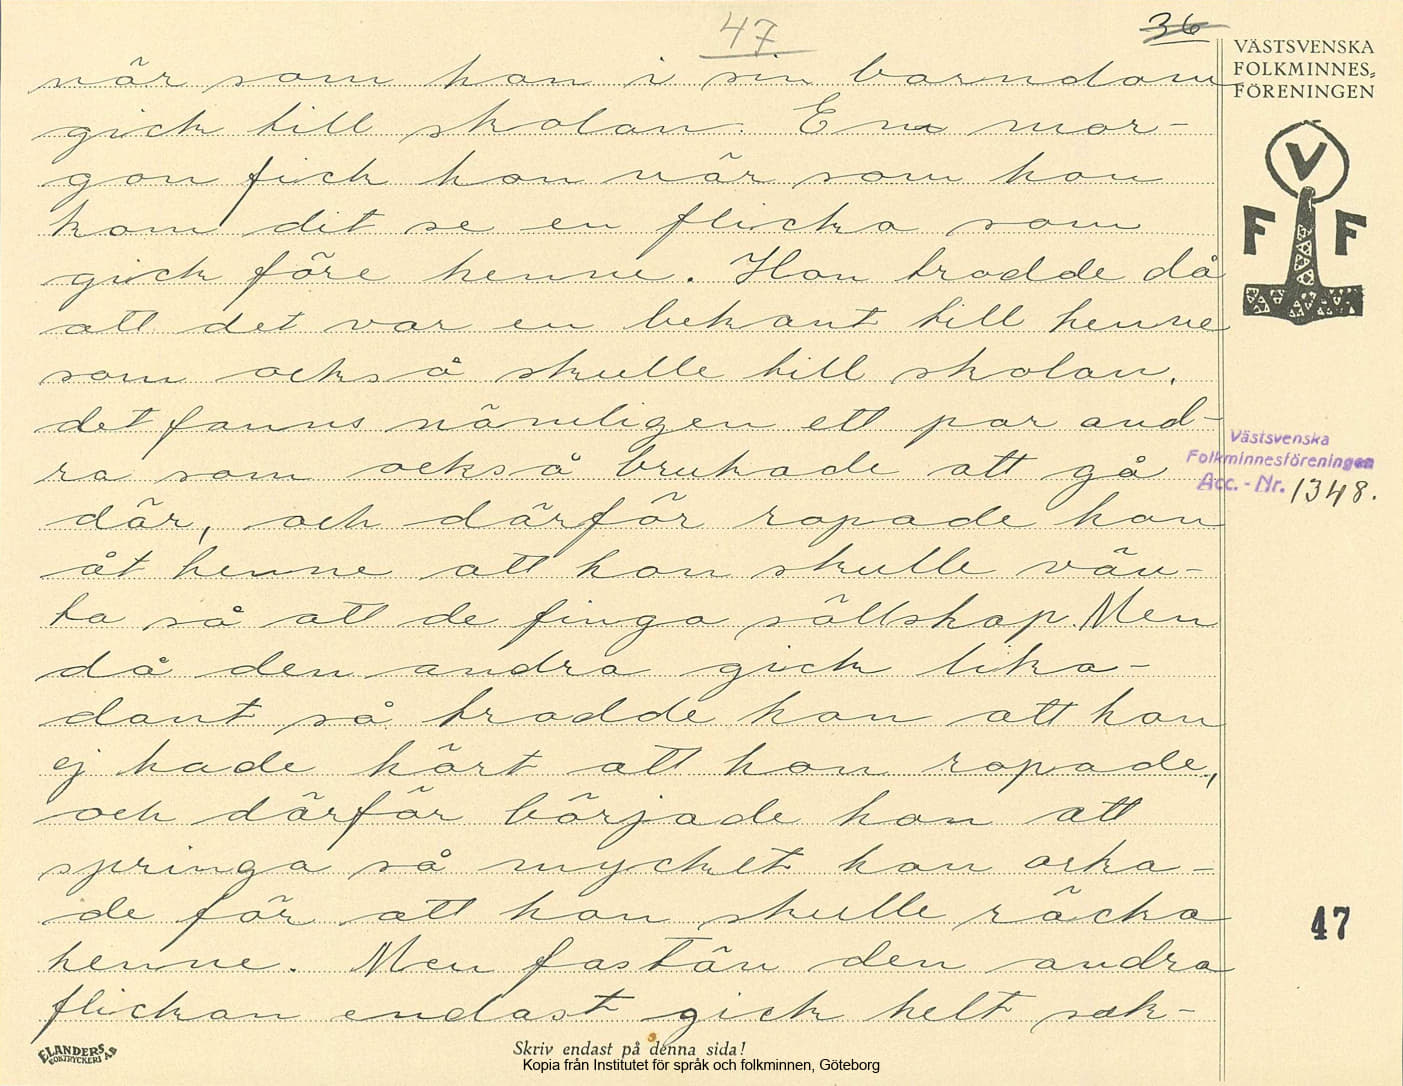 47
36
VÄSTSVENSKA
FOLKMINNES-
FÖRENINGEN
V
F F
när som hon i sin barndom
gick till skolan. En mor-
gon fick hon när som hon
kom dit se en flicka som
gick före henne. Hon trodde då
att det var en bekant till henne
som också skulle till skolan,
det fanns nämligen ett par and-
ra som också brukade att gå
där, och därför ropade hon
åt henne att hon skulle vän-
ta så att de finga sällskap. Men
då den andra gick lika-
dant så trodde hon att hon
ej hade hört att hon ropade,
och därför började hon att
springa så mycket hon orka-
de för att hon skulle räcka
henne. Men fastän den andra
flickan endast gick helt sak-
Västsvenska
Folkminnesföreningen
Acc.-Nr. 1348.
47
ELANDERS
BOKTRYCKERI AB
Skriv endast på denna sida!
Kopia från Institutet för språk och folkminnen, Göteborg